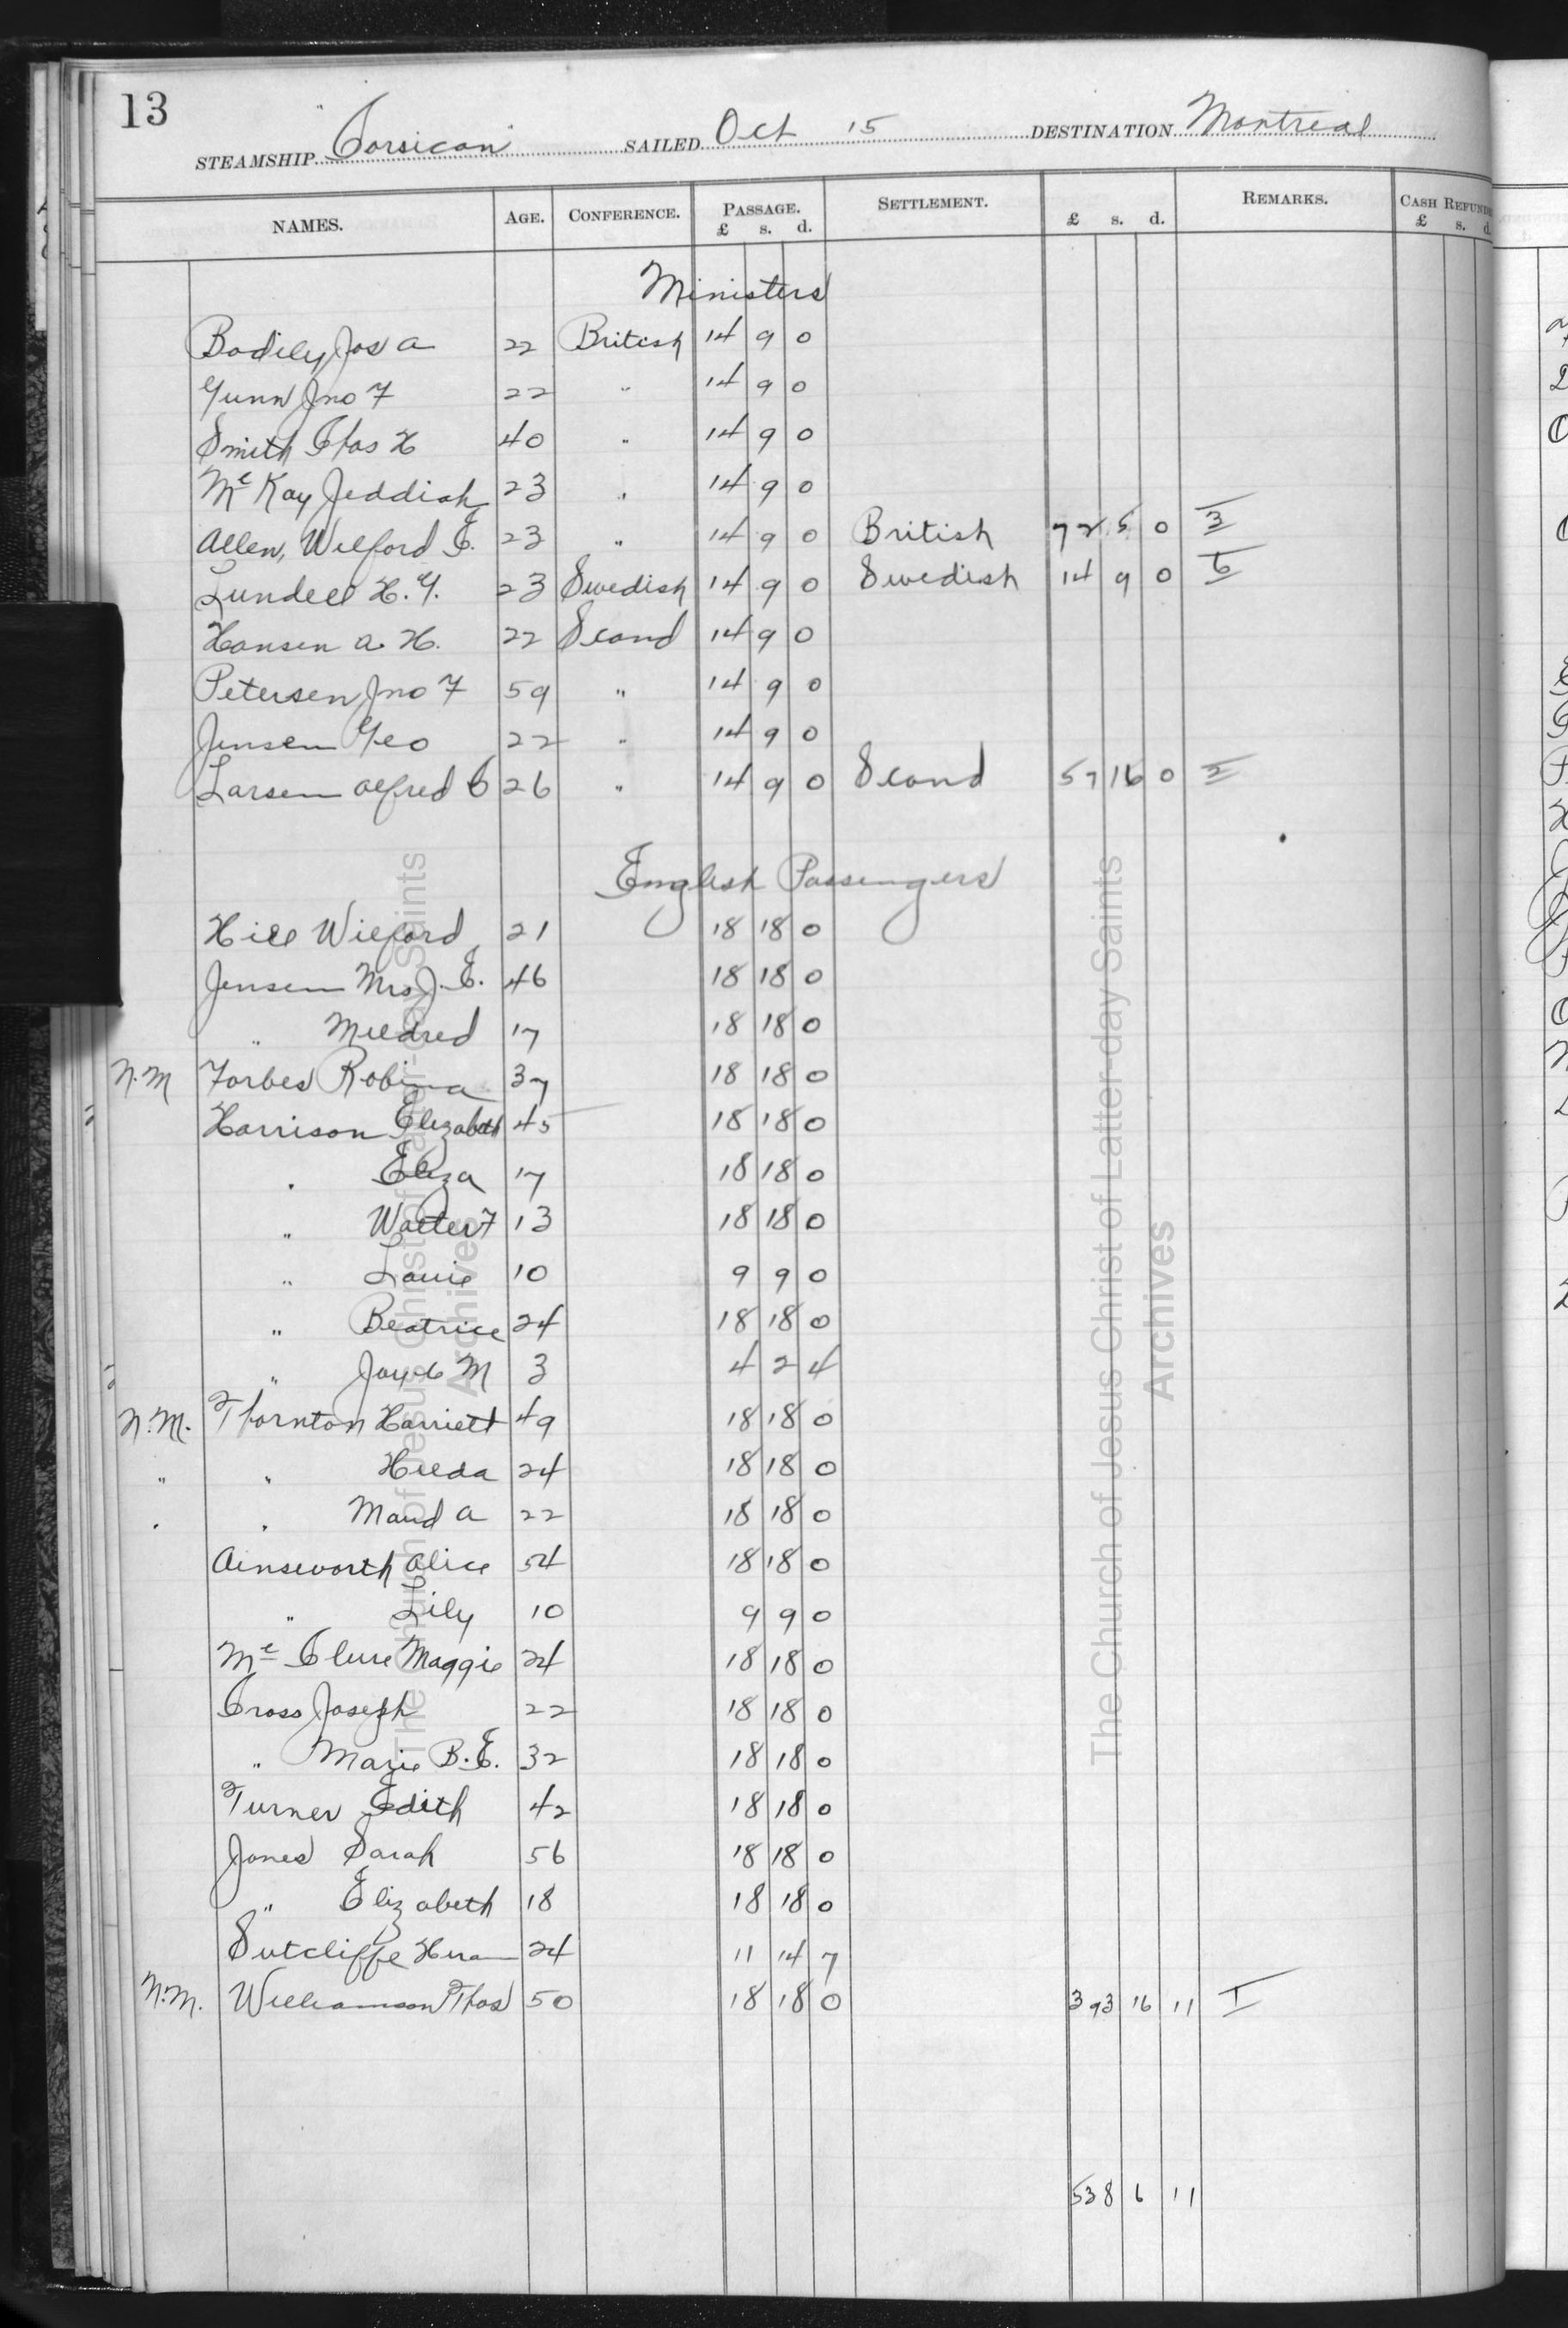 13
STEAMSHIP Corsican SAILED Oct 15 DESTINATION Montreal
NAMES. AGE. CONFERENCE. PASSAGE. £ s. d. SETTLEMENT. £ s. d. REMARKS. CASH REFUND £ s. d.
Ministers
Bodily Jos A 22 British 14 9 0
Gunn Jno F 22 " 14 9 0
Smith Chas H 40 " 14 9 0
Mc Kay Jeddiah 23 " 14 9 0
Allen, Wilford E. 23 " 14 9 0 British 72 5 0 3
Lundell H. Y. 23 Swedish 14 9 0 Swedish 14 9 0 6
Hansen A. H. 22 Scand 14 9 0
Petersen Jno F 59 " 14 9 0
Jensen Geo 22 " 14 9 0
Larsen Alfred C 26 " 14 9 0 Scand 57 16 0
English Passengers
Hill Wilford 21 18 18 0
Jensen Mrs J. E. 46 18 18 0
" Mildred 17 18 18 0
N.M Forbes Robina 37 18 18 0
Harrison Elizabeth 45 18 18 0
" Eliza 17 18 18 0
" Walter F 13 18 18 0
" Louie 10 9 9 0
" Beatrice 24 18 18 0
" Joyce M 3 4 2 4
N.M. Thornton Harriett 49 18 18 0
" " Hilda 24 18 18 0
" " Maud A 22 18 18 0
Ainsworth Alice 54 18 18 0
" Lily 10 9 9 0
Mc Clure Maggie 24 18 18 0
Cross Joseph 22 18 18 0
" Marie B. E. 32 18 18 0
Turner Edith 42 18 18 0
Jones Sarah 56 18 18 0
" Elizabeth 18 18 18 0
Sutcliffe 24 11 14 7
N.M. Williamson Thos 50 18 18 0 393 16 11 I
538 6 11
The Church of Jesus Christ of Latter-day Saints
Archives
The Church of Jesus Christ of Latter-day Saints
Archives